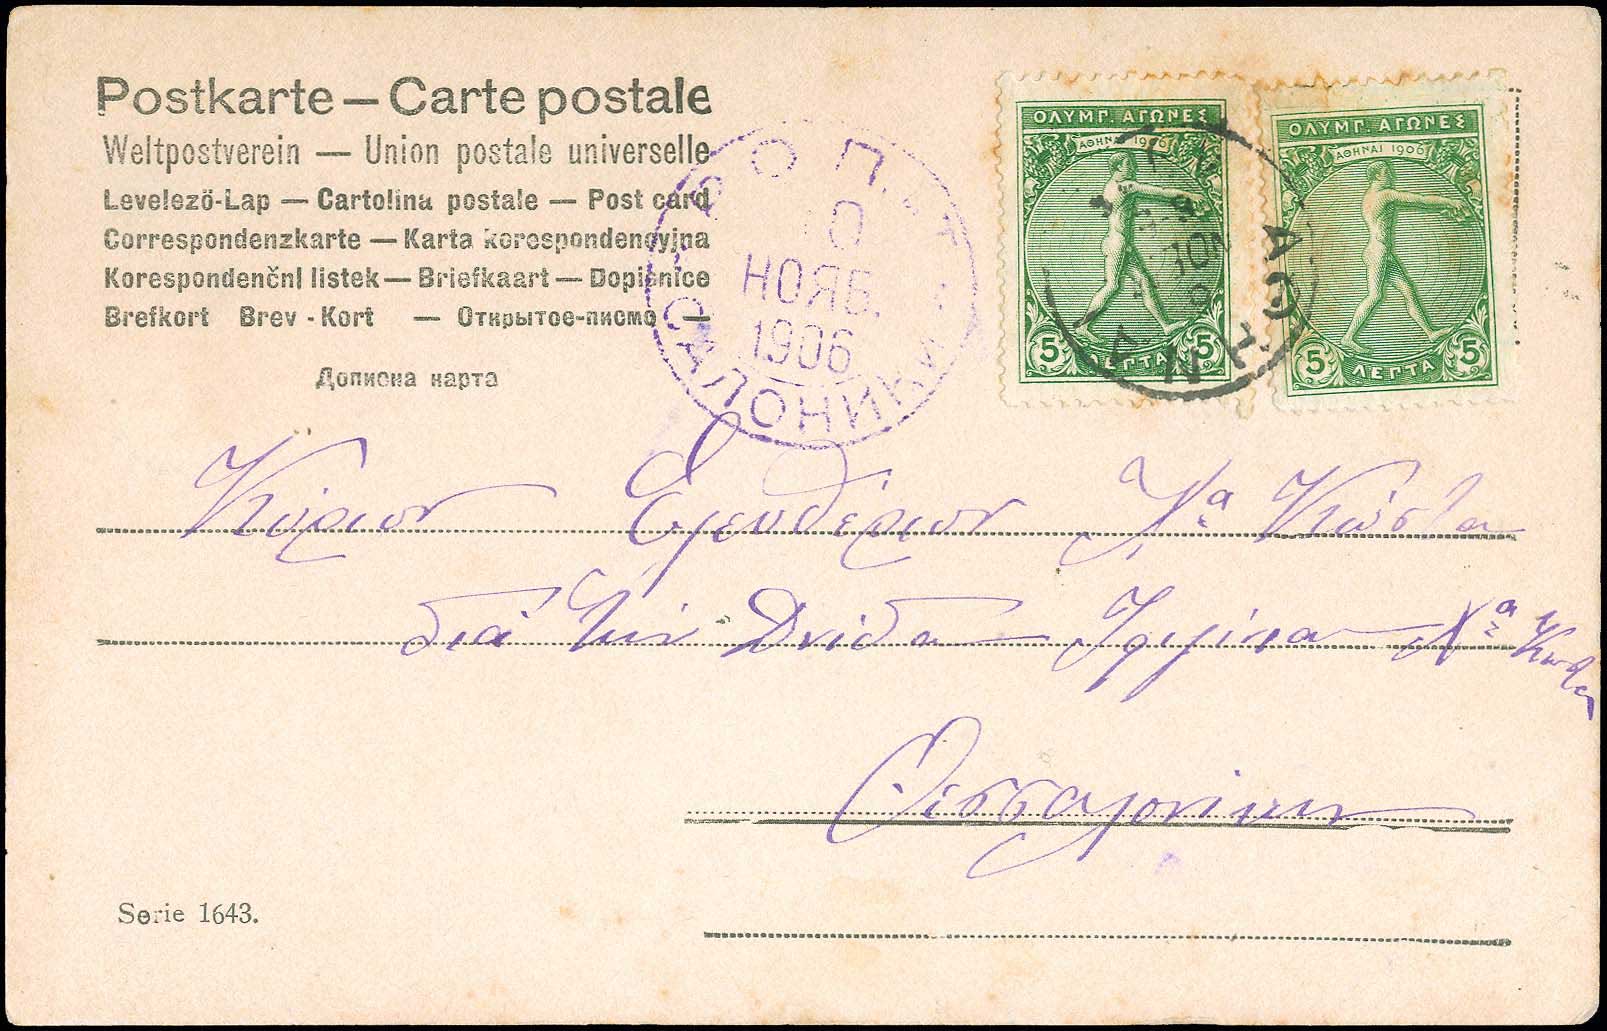 Postkarte — Carte postale
Weltpostverein — Union postale universelle
Levelező-Lap — Cartolina postale — Post card
Correspondenzkarte — Karta korespondencyjna
Korespondenční listek — Briefkaart — Dopisnice
Brefkort Brev-Kort — Открытое-письмо —
Дописна карта
Р. О. П. и Т.
10
НОЯБ.
1906
САЛОНИКИ
ΟΛΥΜΠ. ΑΓΩΝΕΣ
ΑΘΗΝΑΙ 1906
5 ΛΕΠΤΑ 5
ΟΛΥΜΠ. ΑΓΩΝΕΣ
ΑΘΗΝΑΙ 1906
5 ΛΕΠΤΑ 5
ΑΘΗΝΑΙ
Κύριον Ελευθέριον Χα Κώστα
διά την Δνίδα Χα
Θεσσαλονίκην
Serie 1643.